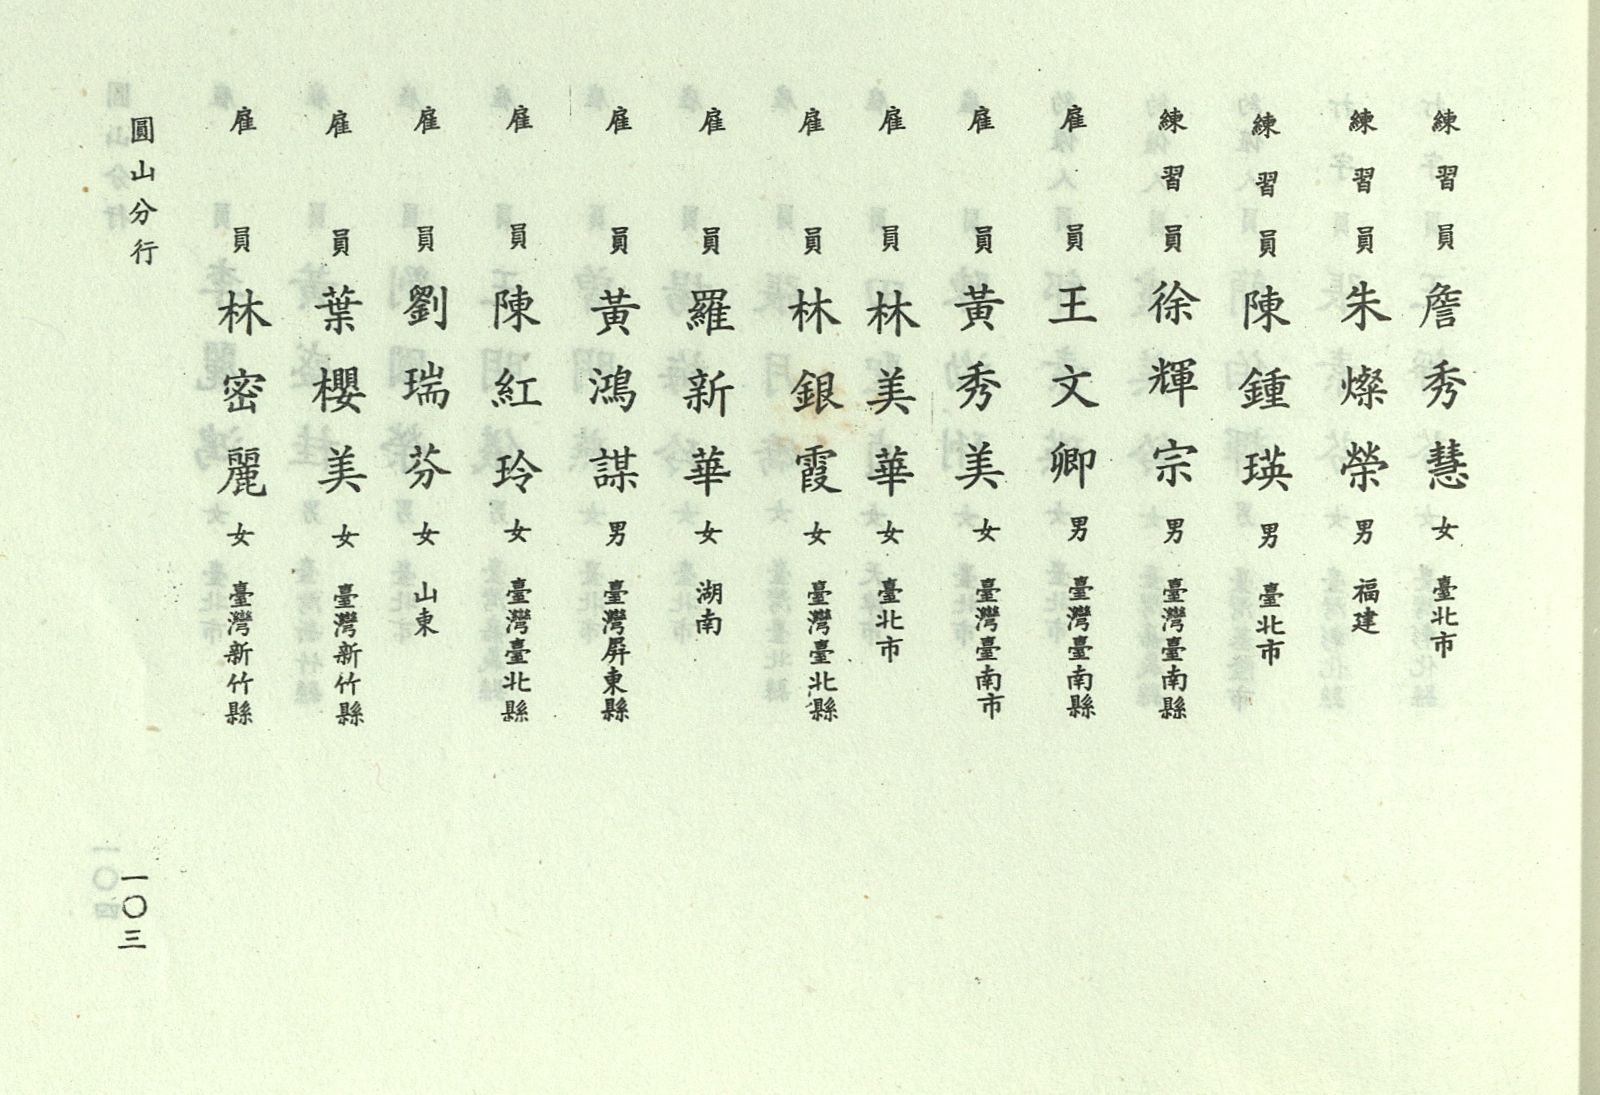 練習員 詹秀慧 女 臺北市
練習員 朱燦榮 男 福建
練習員 陳鍾瑛 男 臺北市
練習員 徐輝宗 男 臺灣臺南縣
雇員 王文卿 男 臺灣臺南縣
雇員 黃秀美 女 臺灣臺南市
雇員 林美華 女 臺北市
雇員 林銀霞 女 臺灣臺北縣
雇員 羅新華 女 湖南
雇員 黃鴻謀 男 臺灣屏東縣
雇員 陳紅玲 女 臺灣臺北縣
雇員 劉瑞芬 女 山東
雇員 葉櫻美 女 臺灣新竹縣
雇員 林密麗 女 臺灣新竹縣
圓山分行
一〇三